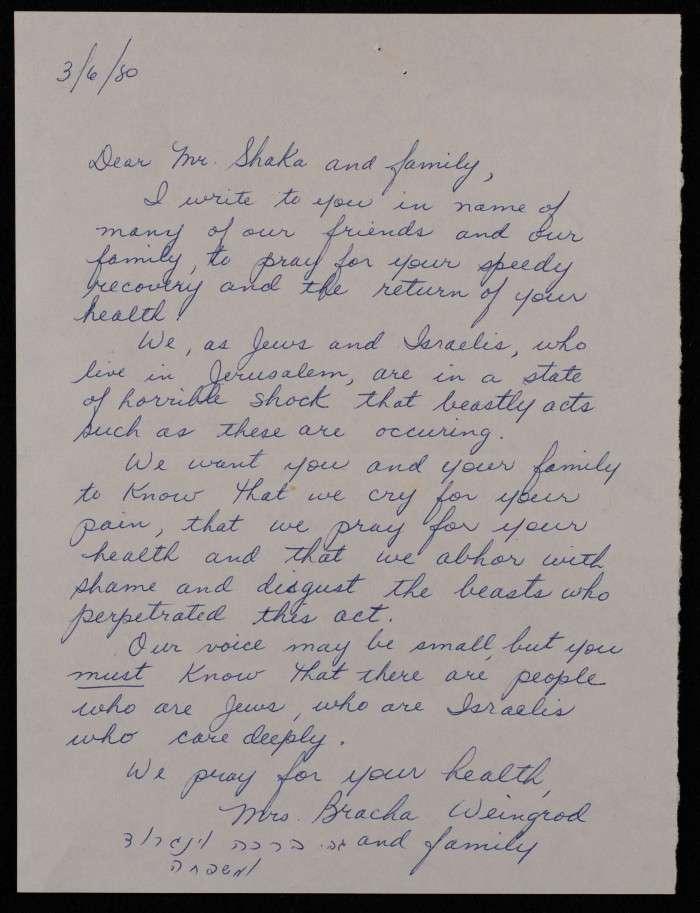 3/6/80
Dear Mr. Shaka and family,
I write to you in name of
many of our friends and our
family, to pray for your speedy
recovery and the return of your
health.
We, as Jews and Israelis, who
live in Jerusalem, are in a state
of horrible shock that beastly acts
such as these are occuring.
We want you and your family
to know that we cry for your
pain, that we pray for your
health and that we abhor with
shame and disgust the beasts who
perpetrated this act.
Our voice may be small, but you
must know that there are people
who are Jews, who are Israelis
who care deeply.
We pray for your health,
Mrs. Bracha Weingrod
and family
גב. ברכה וינגרוד
ומשפחה